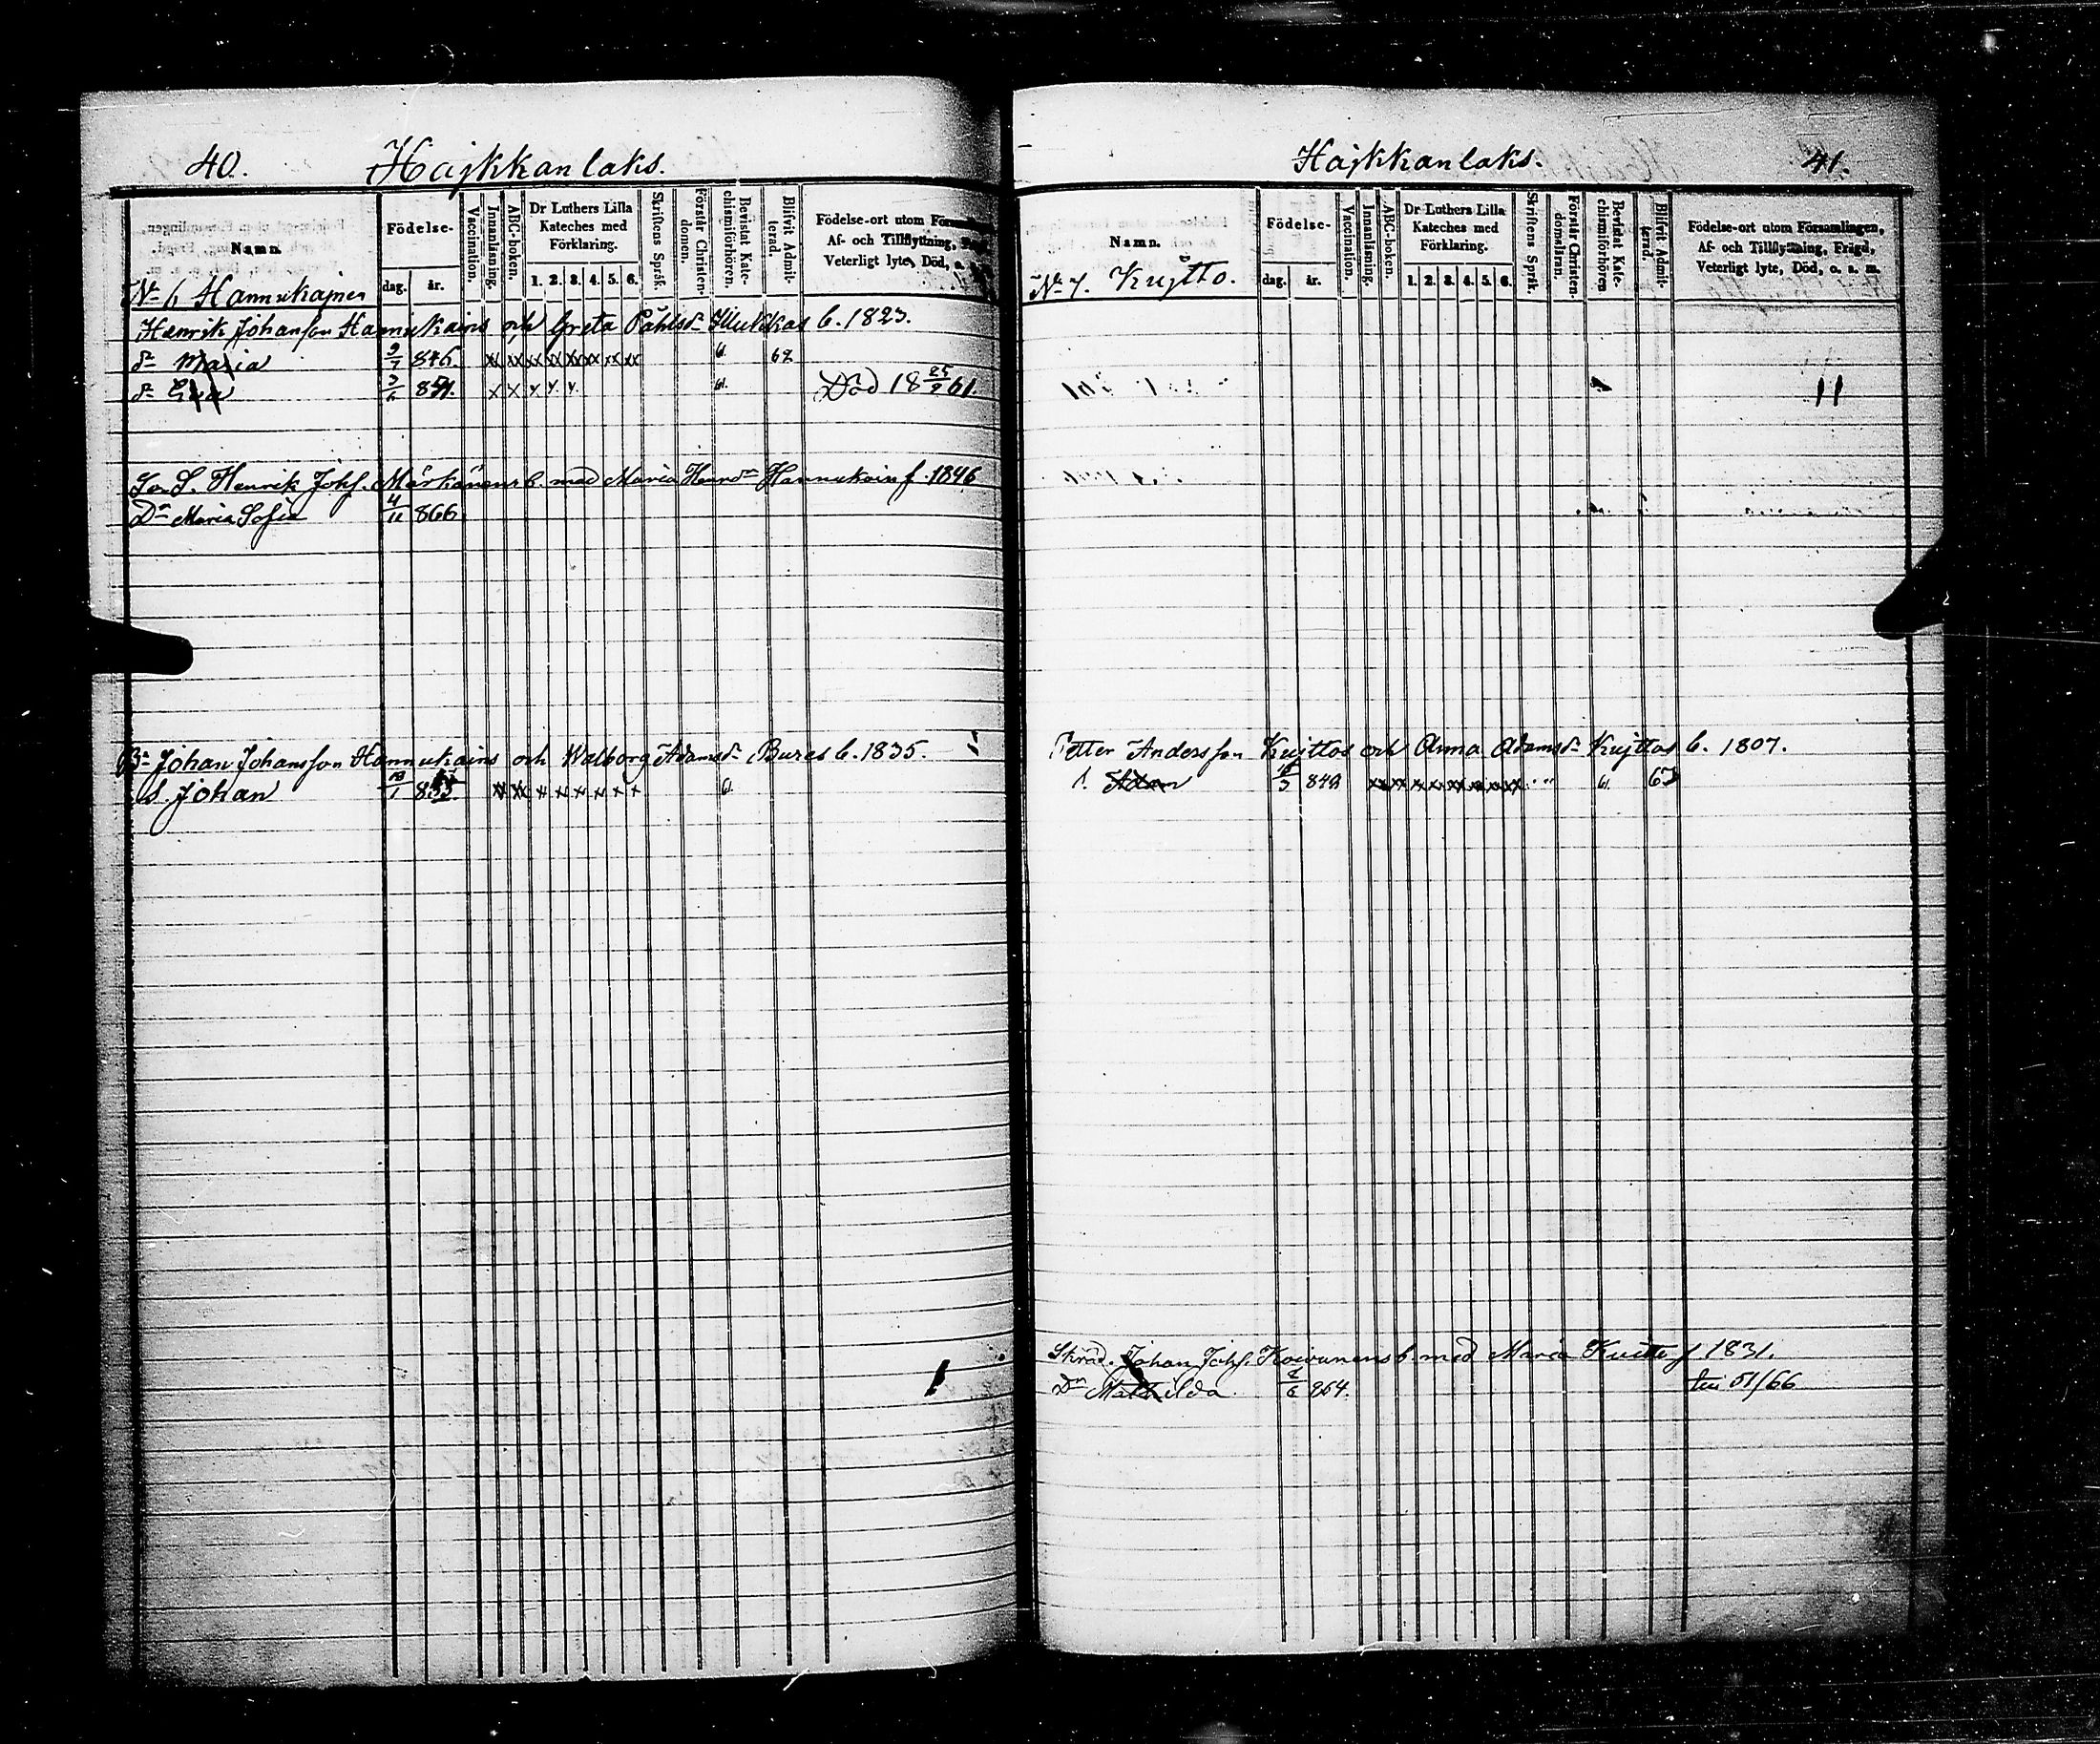 40. Hajkkanlaks.
Namn.
Födelse-
dag. år.
Vaccination.
Innanläsning.
ABC-boken.
Dr Luthers Lilla Kateches med Förklaring.
1. 2. 3. 4. 5. 6.
Skriftens Språk
Förstår Christen-domen.
Bevistat Kate-chismiförhören.
Blifvit Admit-terad.
Födelse-ort utom
Af- och Tillflyttning,
Veterligt lyte, Död, o.
No 6 Hannukajnen
Henrik Johansson Hannukains och Greta Påhlsdr b. 1823.
dr Maria 9/7 846. xx xx xx xx xx xx xx xx 61. 62
dr Eva 3/6 851. x x x x x 61. Död 18 25/2 61.
S. Henrik Johs. Märkänens b. med Maria Henrdr Hannukain f. 1846
Dr Maria Sofia 4/11 866
Johan Johansson Hannukains och Walborg Adamsdr Bures b. 1835.
s. Johan xx xx x x x x x x 61.
Hajkkanlaks. 41.
Namn.
Födelse-
dag. år.
Vaccination.
Innanläsning.
ABC-boken.
Dr Luthers Lilla Kateches med Förklaring.
1. 2. 3. 4. 5. 6.
Skriftens Språk.
Förstår Christen-domsläran.
Bevistat Kate-chismiförhören
Blifvit Admit-terad.
Födelse-ort utom Församlingen,
Af- och Tillflyttning, Frägd,
Veterligt lyte, Död, o. s. m.
No 7. Kujtto.
Petter Andersson Kujttos och Anna Adamsdr Kujttos b. 1807.
s. Adam xx xx xx xx xx xx xx xx 61. 67
Skräd. Johan Johs. Koivunens b. med Maria Kuitto f. 1831.
Dr Mathilda 2/6 864. 51/66